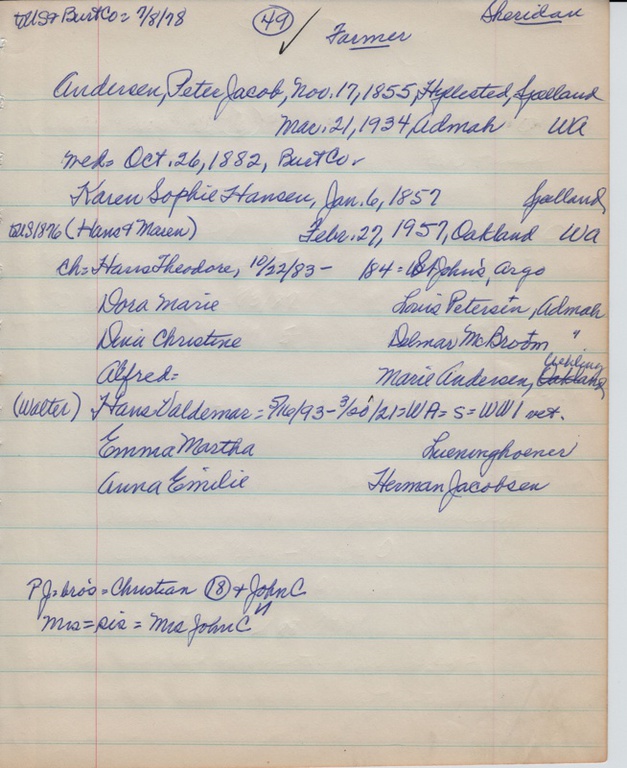 toUS+BurtCo= 7/8/78 49 ✓ Sheridan
Farmer
Andersen, Peter Jacob, Nov. 17, 1855, Hyllested, Sjælland
Mar. 21, 1934 Admah WA
wed= Oct. 26, 1882, Burt Co.
Karen Sophie Hansen, Jan. 6, 1857 Sjælland,
toUS1876 (Hans & Maren) Febr. 27, 1957, Oakland WA
ch= Hans Theodore, 10/22/83- /84= St John's, Argo
Dora Marie Louis Petersen, Admah
Christine Delmar McBroom "
Alfred= Marie Andersen, Oakland Uehling
(Walter) Hans Valdemar= 5/16/93- /21=WA=S=WW1 vet.
Emma Martha Lueninghoener
Anna Emilie Herman Jacobsen
PJ=bro's= Christian 18 + John C
Mrs=sis= Mrs John C "